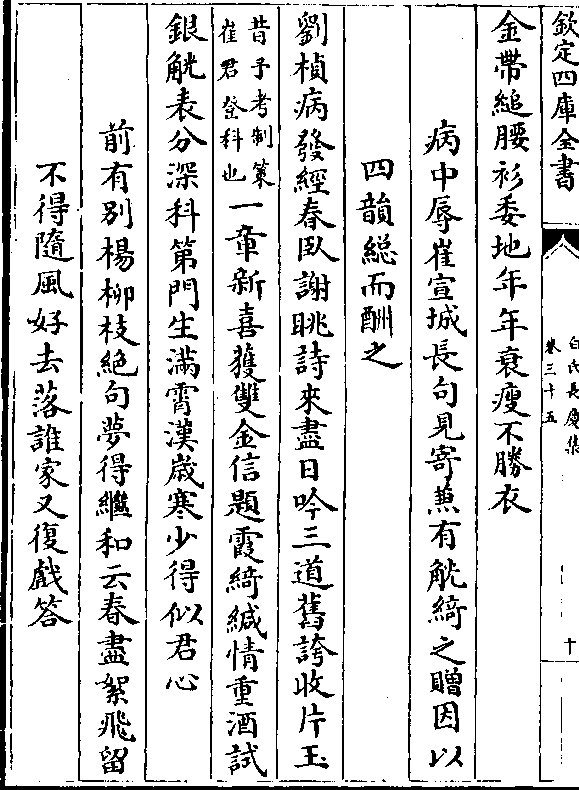 欽定四庫全書
白氏長慶集
卷三十五
十
金帶縋腰衫委地年年衰瘦不勝衣
病中辱崔宣城長句見寄兼有觥綺之贈因以
四韻総而酬之
劉楨病發經春臥謝眺詩來盡日吟三道舊誇收片玉
昔予考制策
崔君登科也
一章新喜獲雙金信題霞綺緘情重酒試
銀觥表分深科第門生滿霄漢歲寒少得似君心
前有别楊柳枝絶句夢得繼和云春盡絮飛留
不得隨風好去落誰家又復戲答